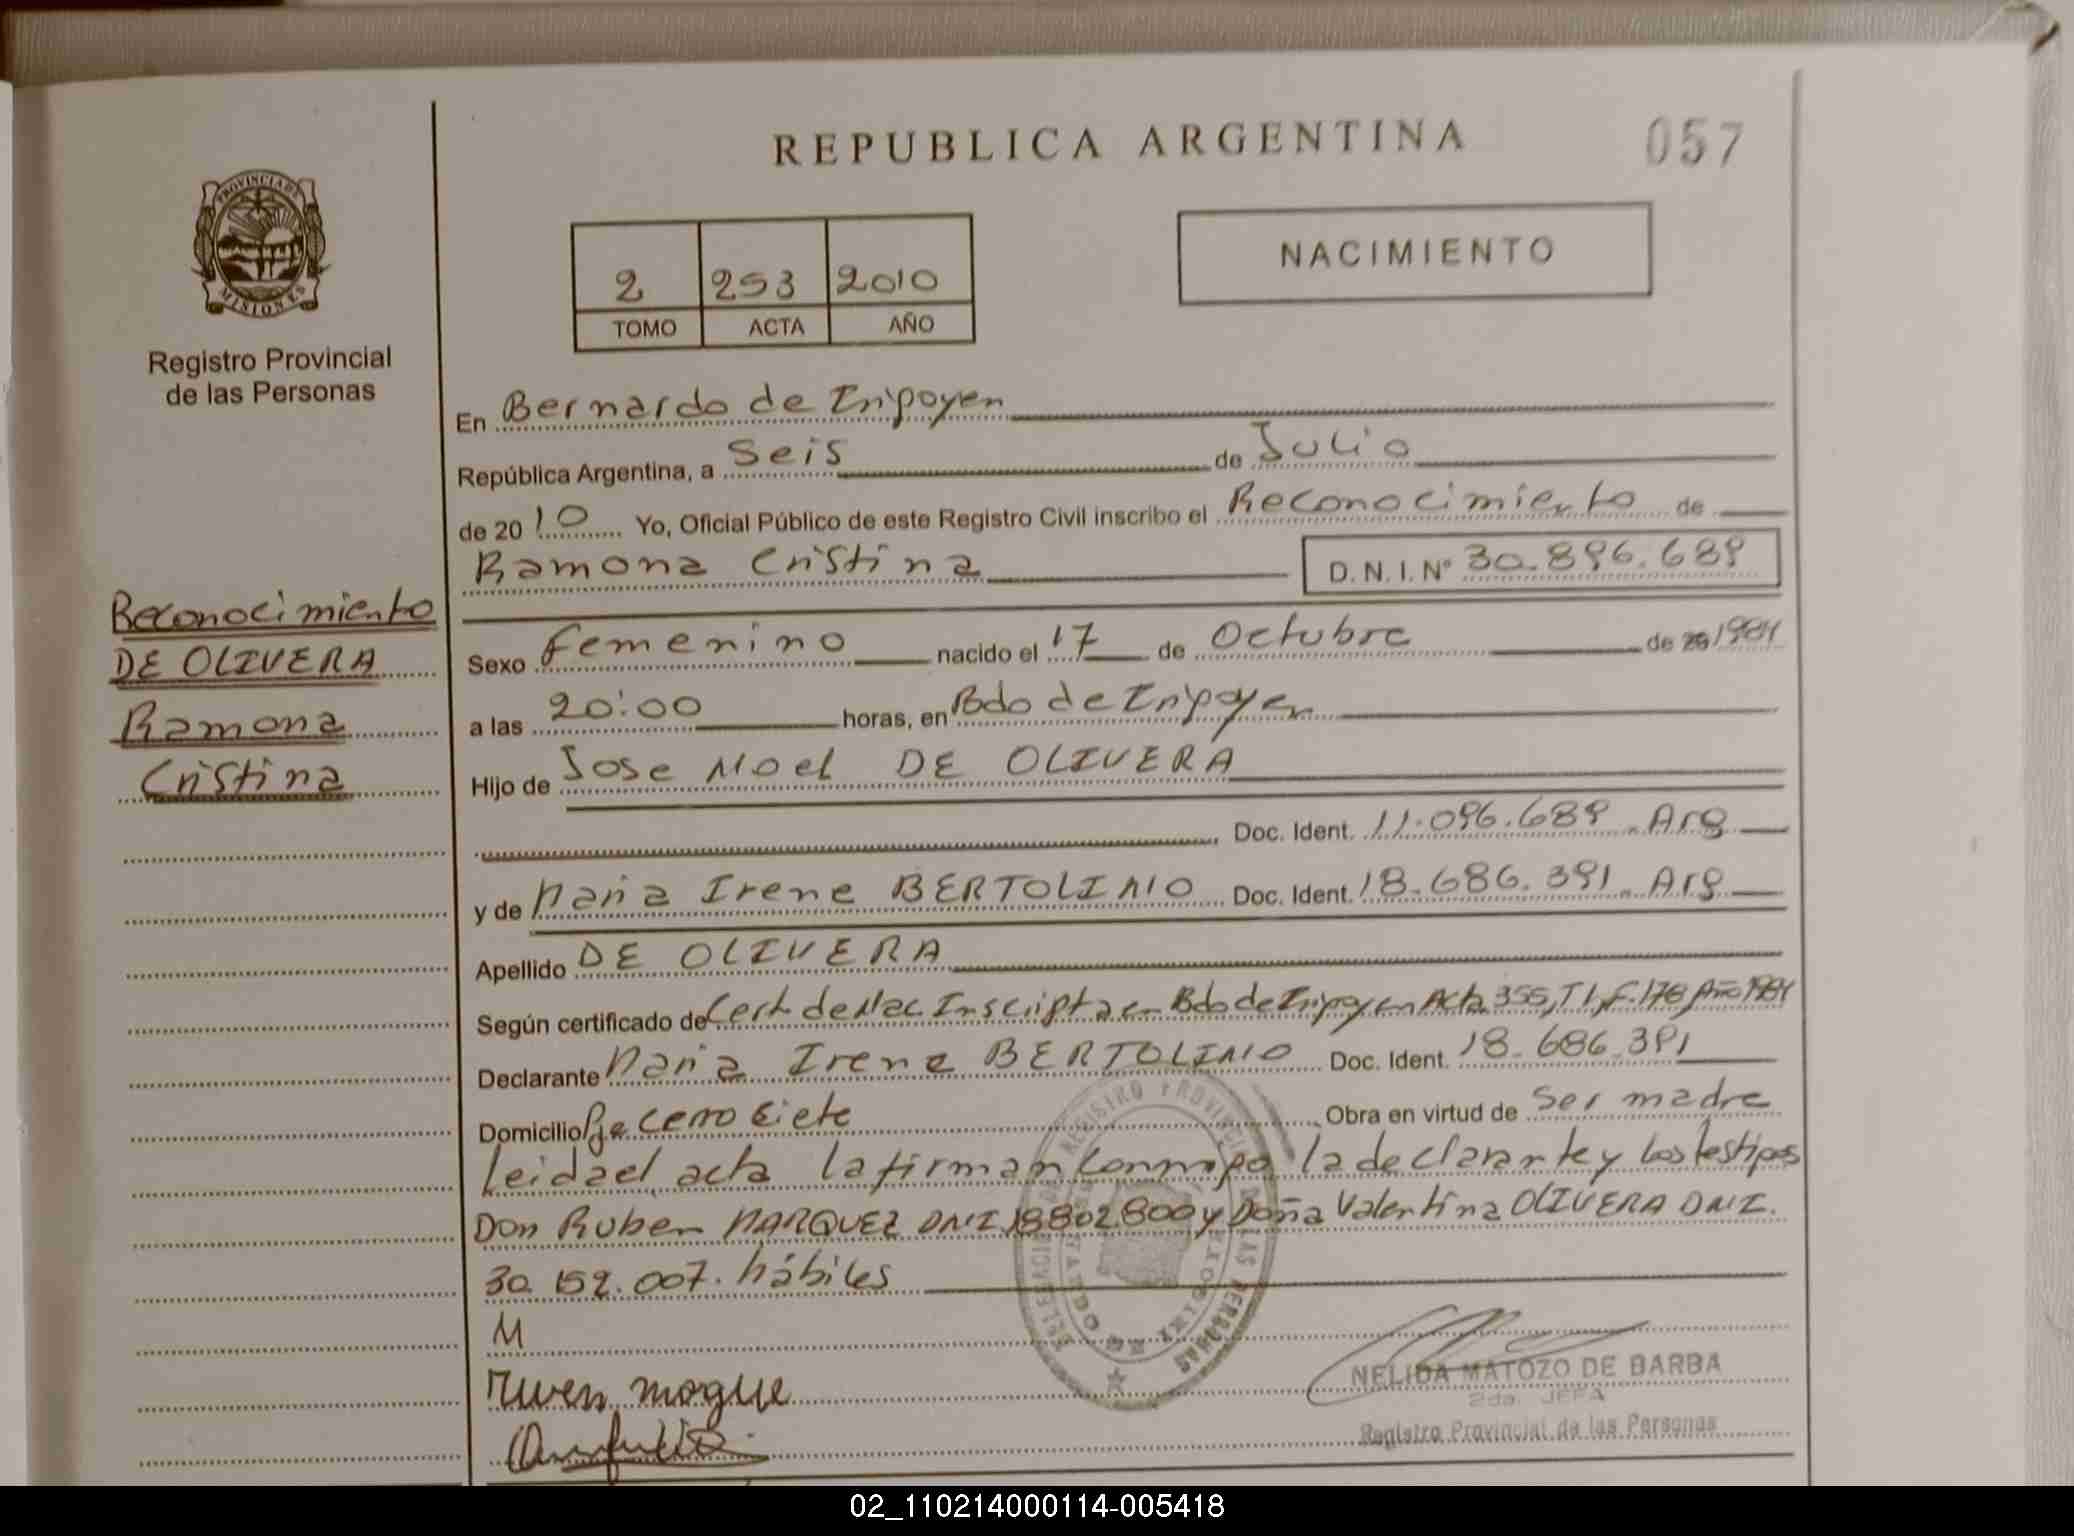 REPUBLICA ARGENTINA
057
PROVINCIA DE MISIONES
Registro Provincial
de las Personas
2 253 2010
TOMO ACTA AÑO
NACIMIENTO
En Bernardo de Irigoyen
República Argentina, a Seis de Julio
de 2010 Yo, Oficial Público de este Registro Civil inscribo el Reconocimiento de
Ramona Cristina D.N.I. Nº 30.896.689
Reconocimiento
DE OLIVERA
Ramona
Cristina
Sexo Femenino nacido el 17 de Octubre de 20 1984
a las 20:00 horas, en Bdo de Irigoyen
Hijo de Jose Noel DE OLIVERA
Doc. Ident. 11.096.689 Arg
y de Maria Irene BERTOLINO Doc. Ident. 18.686.391 Arg
Apellido DE OLIVERA
Según certificado de Cert de Nac Inscripta en Bdo de Irigoyen Acta 355, T1, F.178 Año 1984
Declarante Maria Irene BERTOLINO Doc. Ident. 18.686.391
Domicilio Pje Cerro Siete Obra en virtud de Ser madre
Leida el acta la firman conmigo la declarante y los testigos
Don Ruben MARQUEZ DNI 18802.800 y Doña Valentina OLIVERA DNI.
30.152.007. hábiles
M
DELEGACION DEL REGISTRO PROVINCIAL DE LAS PERSONAS
NELIDA MATOZO DE BARBA
2da. JEFA
Registro Provincial de las Personas
02_110214000114-005418